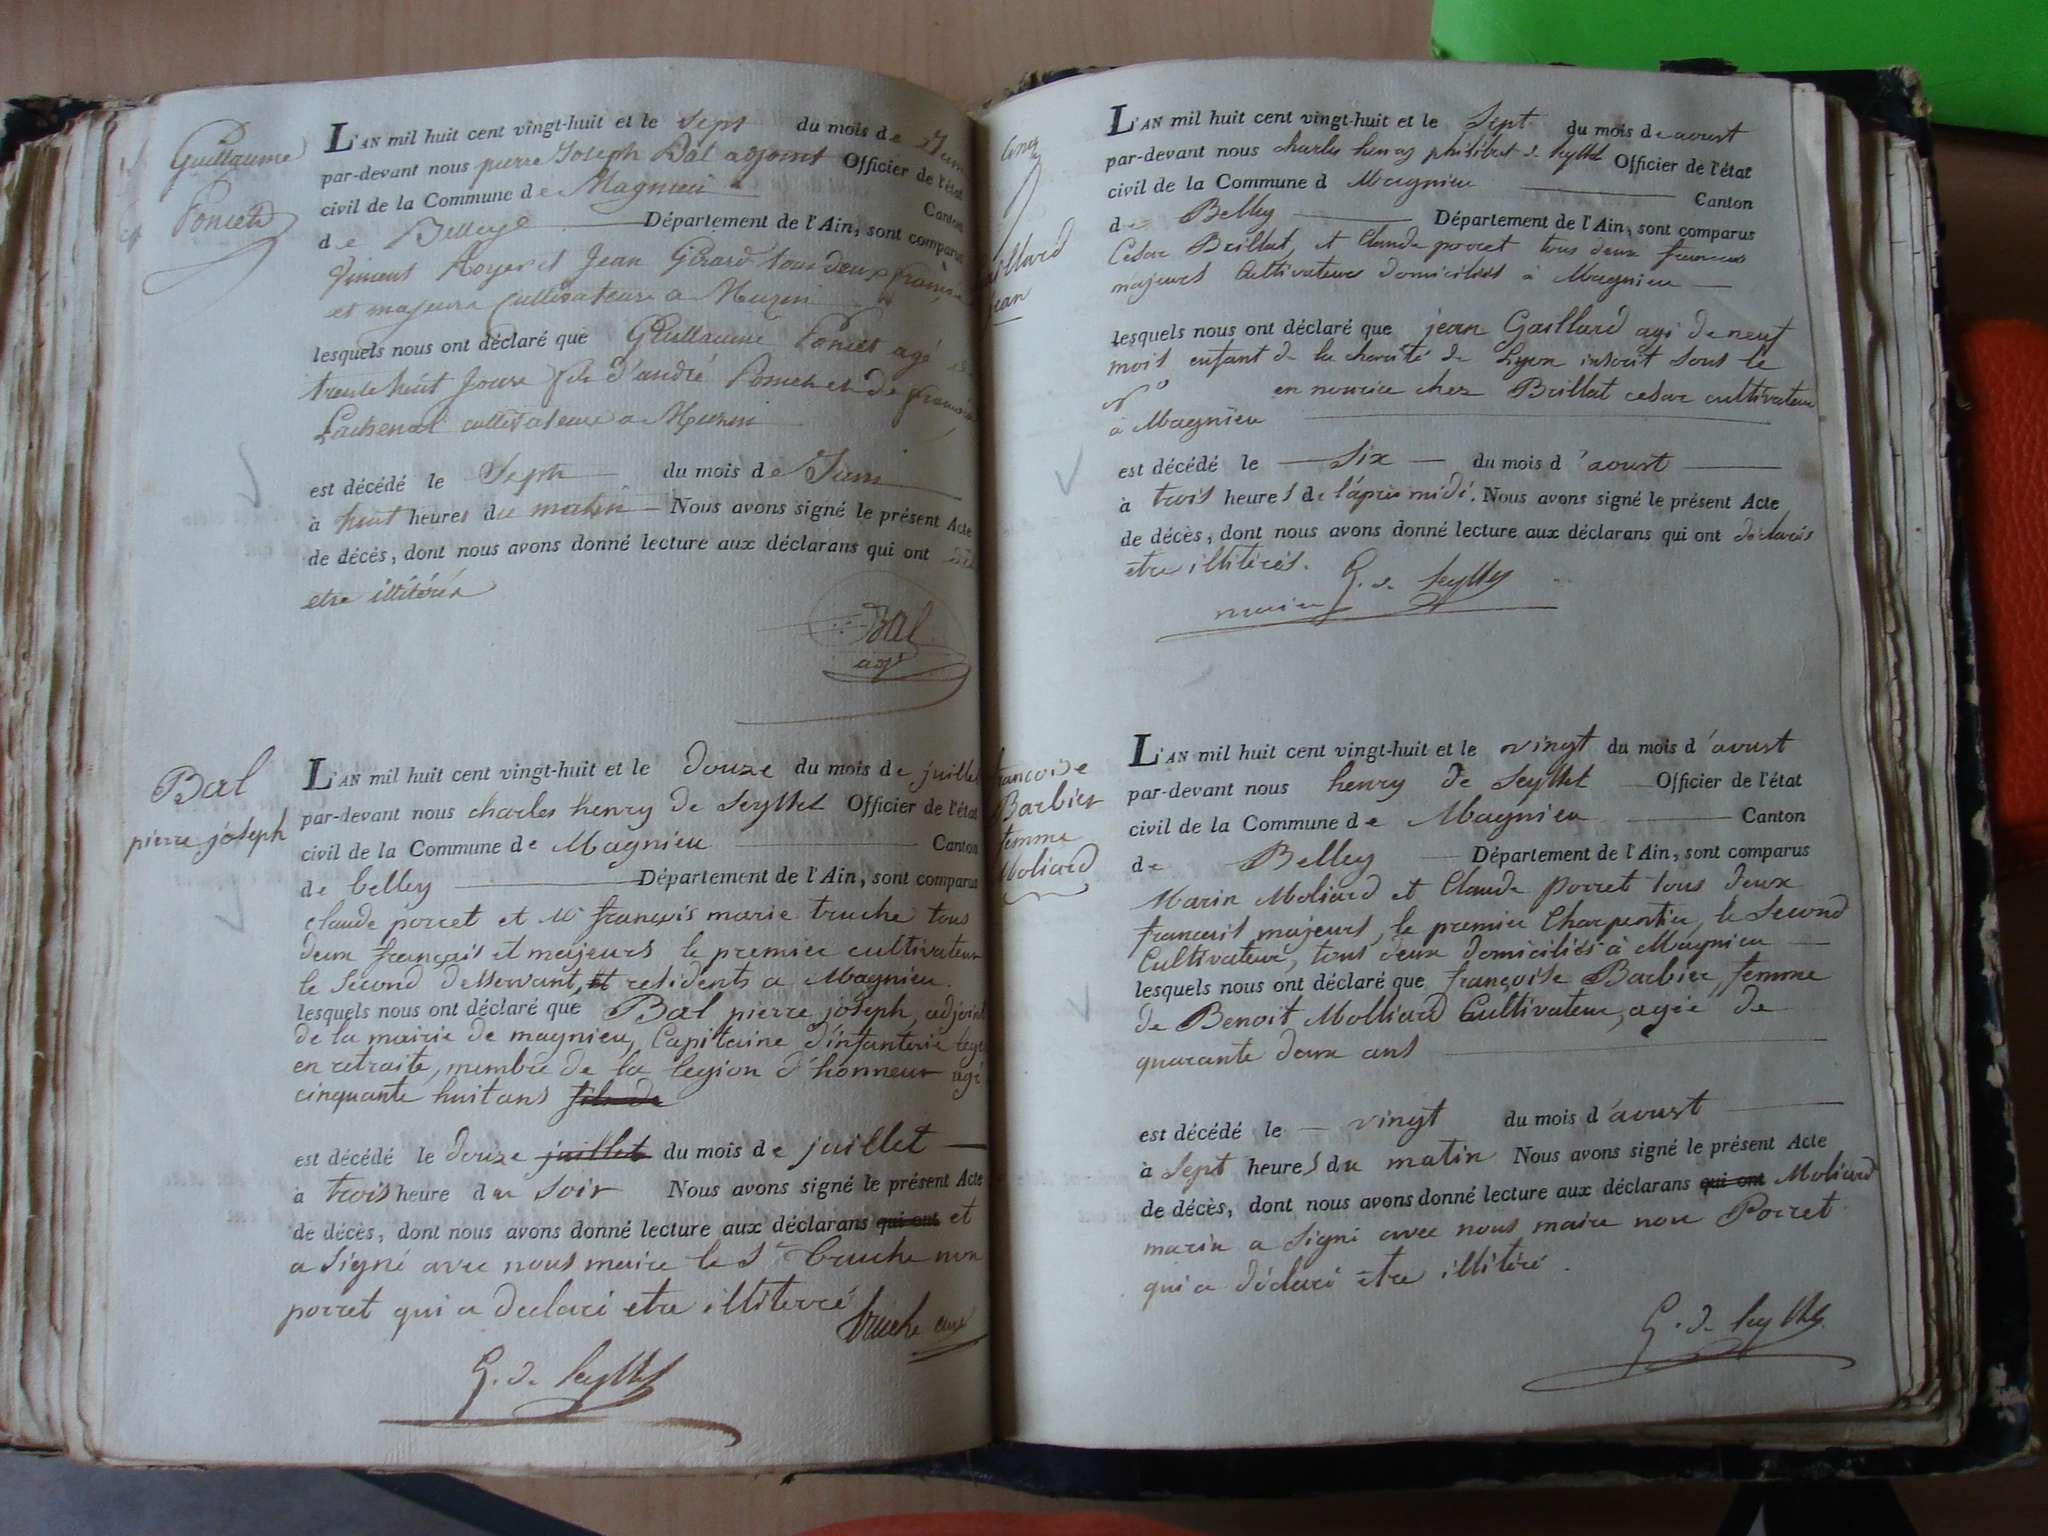 Guillaume
Poncet
L'AN mil huit cent vingt-huit et le sept du mois de Juin
par-devant nous pierre Joseph Bal adjoint Officier de l'état
civil de la Commune de Magnieu Canton
de Belley Département de l'Ain, sont comparus
Vincent Royer et Jean Girard tous deux français
et majeurs Cultivateurs a Musin
lesquels nous ont déclaré que Guillaume Poncet agé de
trente huit Jours fils d'andré Poncet et de françoise
Lachenal cultivateurs a Musin
est décédé le Sept du mois de Juin
à huit heures du matin Nous avons signé le présent Acte
de décès, dont nous avons donné lecture aux déclarans qui ont
etre illitérés
Bal
adjt
Bal
pierre joseph
L'AN mil huit cent vingt-huit et le douze du mois de juillet
par-devant nous charles henry de Seyssel Officier de l'état
civil de la Commune de Magnieu Canton
de belley Département de l'Ain, sont comparus
claude porret et Mr françois marie truche tous
deux français et majeurs le premier cultivateur
le Second desservant, et residents a Magnieu.
lesquels nous ont déclaré que Bal pierre joseph, adjoint
de la mairie de magnieu, Capitaine d'infanterie
en retraite, membre de la legion d'honneur agé
cinquante huit ans fils de
est décédé le douze juillet du mois de juillet
à trois heure du soir Nous avons signé le présent Acte
de décès, dont nous avons donné lecture aux déclarans qui ont et
a Signé avec nous maire le Sr truche non
porret qui a declaré etre illiterré
truche curé
G. de Seyssel
Gaillard
Jean
L'AN mil huit cent vingt-huit et le Sept du mois de aoust
par-devant nous charles henry philibert de Seyssel Officier de l'état
civil de la Commune d Magnieu Canton
de Belley Département de l'Ain, sont comparus
César Brillat, et Claude porret tous deux francais
majeurs Cultivateurs domiciliés à Magnieu
lesquels nous ont déclaré que jean Gaillard agé de neuf
mois enfant de la charité de Lyon inscrit sous le
no en nourice chez Brillat cesar cultivateur
à Magnieu
est décédé le Six du mois d'aoust
à trois heures de l'après midi. Nous avons signé le présent Acte
de décès, dont nous avons donné lecture aux déclarans qui ont déclarés
etre illitérés.
maire G. de Seyssel
francoise
Barbier
femme
Moliard
L'AN mil huit cent vingt-huit et le vingt du mois d'avust
par-devant nous henry de Seyssel Officier de l'état
civil de la Commune de Magnieu Canton
de Belley Département de l'Ain, sont comparus
Marin Moliard et Claude porret tous deux
francais majeurs, le premier Charpentier, le Second
Cultivateur, tous deux domiciliés à Magnieu
lesquels nous ont déclaré que françoise Barbier, femme
de Benoit Molliard Cultivateur, agée de
quarante deux ans
est décédé le vingt du mois d'avust
à Sept heures du matin Nous avons signé le présent Acte
de décès, dont nous avons donné lecture aux déclarans qui ont Moliard
marin a Signé avec nous maire non Porret
qui a déclaré etre illitéré.
G. de Seyssel